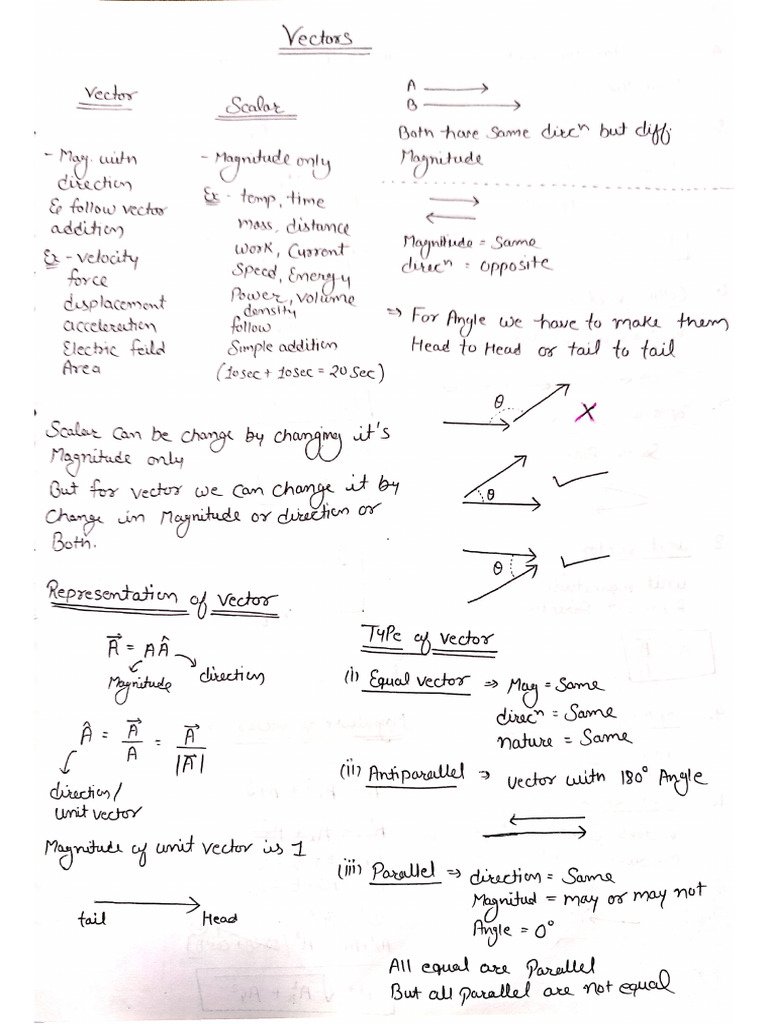 Vectors
Vector
- Mag. with
direction
& follow vector
addition
Ex - velocity
force
displacement
acceleration
Electric feild
Area
Scalar
- Magnitude only
Ex - temp, time
mass, distance
work, Current
Speed, Energy
Power, volume
density
follow
Simple addition
(10sec + 10sec = 20sec)
Scalar can be change by changing it's
Magnitude only
But for vector we can change it by
change in Magnitude or direction or
Both.
Representation of vector
A⃗ = A Â
Magnitude direction
Â = A⃗/A = A⃗/|A⃗|
direction/
unit vector
Magnitude of unit vector is 1
tail Head
A
B
Both have same direcⁿ but diff.
Magnitude
Magnitude = Same
direcⁿ = opposite
⇒ For Angle we have to make them
Head to Head or tail to tail
θ X
θ
θ
Type of vector
(i) Equal vector ⇒ Mag = Same
direcⁿ = Same
nature = Same
(ii) Antiparallel ⇒ vector with 180° Angle
(iii) Parallel ⇒ direction = Same
Magnitud = may or may not
Angle = 0°
All equal are Parallel
But all parallel are not equal